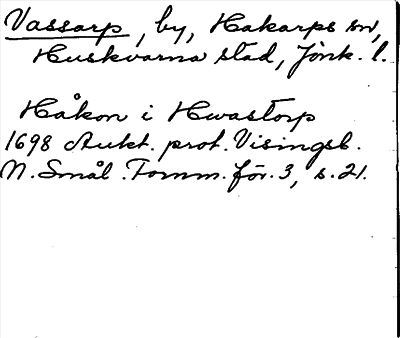 Vassarp, by, Hakarps sn,
Huskvarna stad, Jönk. l.
Håkon i Hwastorp
1698 Aukt. prot. Visingsb.
N. Smål. Fornm. för. 3, s. 21.